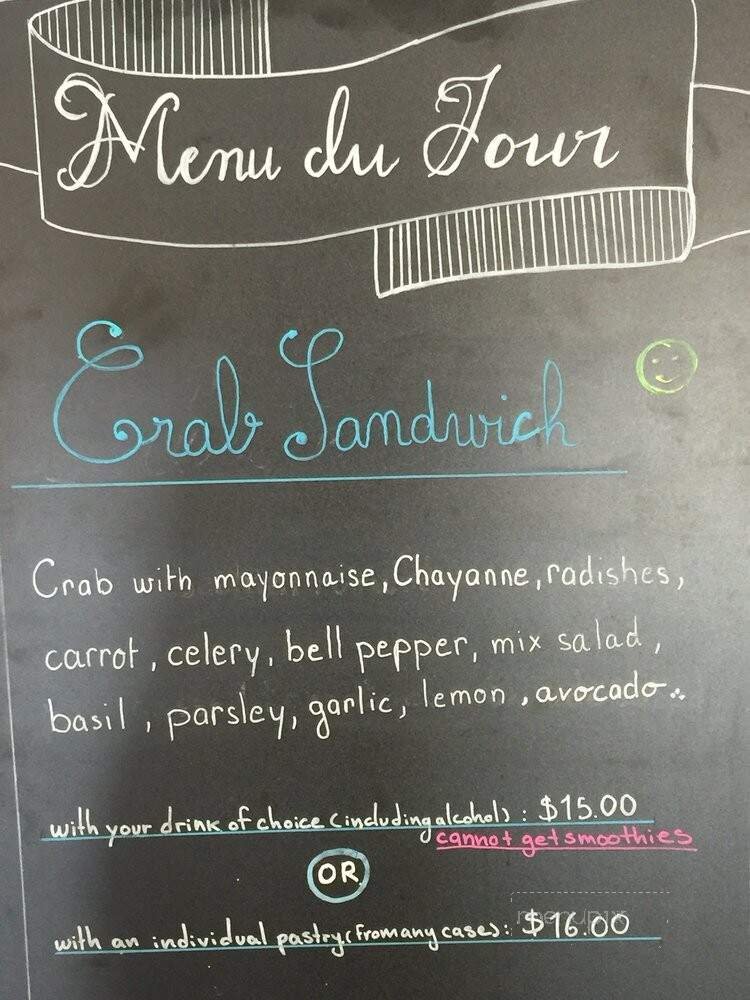 Menu du Jour
Crab Sandwich
Crab with mayonnaise, Chayanne, radishes,
carrot, celery, bell pepper, mix salad,
basil, parsley, garlic, lemon, avocado...
with your drink of choice (including alcohol): $15.00
cannot get smoothies
OR
with an individual pastry (from any case): $16.00
menupix